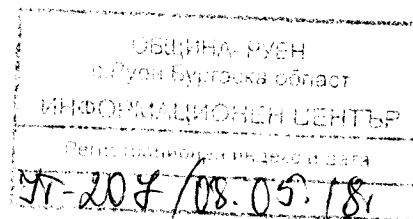 ОБЩИНА- РУЕН
с.Руен Бургаска област
ИНФОРМАЦИОНЕН ЦЕНТЪР
Регистрационен индекс и дата
УТ-207/08.05.18г